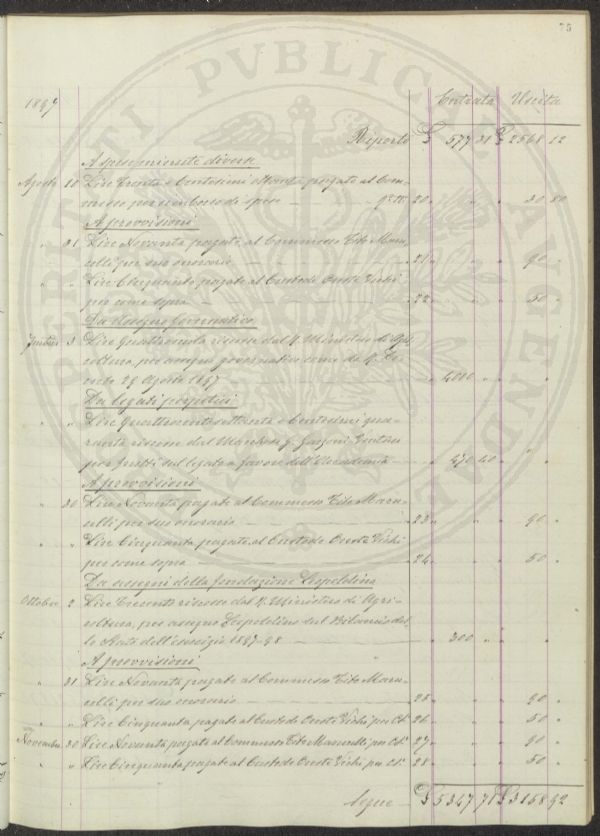 75
1897 Entrata Uscita
Riporto £ 577 31 £ 2568 12
A spese minute diverse
Agosto 20 Lire Trenta e Centesimi ottanta pagate al Com-
messo per rimborso di spese — 20 30 80
A provvisioni
" 31 Lire Novanta pagate al Commesso Tito Maru-
celli per suo onorario — 21 90 "
" " Lire Cinquanta pagate al Custode Oreste
per come sopra — 22 50 "
Da Assegno Governativo
3 Lire Quattromila riscosse dal R. Ministero di Agri-
coltura, per assegno governativo come da R. De-
creto 29 Agosto 1897 — 4000 "
Da legati perpetui
" " Lire Quattrocento settanta e Centesimi qua-
ranta riscosse dal Marchese G. Garzoni Venturi
per frutti sul legato a favore dell'Accademia — 470 40
A provvisioni
" 30 Lire Novanta pagate al Commesso Tito Maru-
celli per suo onorario — 23 90 "
" " Lire Cinquanta pagate al Custode Oreste
per come sopra — 24 50 "
Da assegni della fondazione Leopoldina
Ottobre 2 Lire Trecento riscosse dal R. Ministero di Agri-
coltura, per assegno Leopoldino sul Bilancio del-
lo Stato dell'esercizio 1897-98 — 300 "
A provvisioni
" 31 Lire Novanta pagate al Commesso Tito Maru-
celli per suo onorario — 25 90 "
" " Lire Cinquanta pagate al Custode Oreste per Cs. 26 50 "
Novembre 30 Lire Novanta pagate al Commesso Tito Marucelli per Cs. 27 90 "
" " Lire Cinquanta pagate al Custode Oreste per Cs. 28 50 "
Segue £ 5347 71 £ 3158 92
PROSPERITATI PVBLICAE AVGENDAE